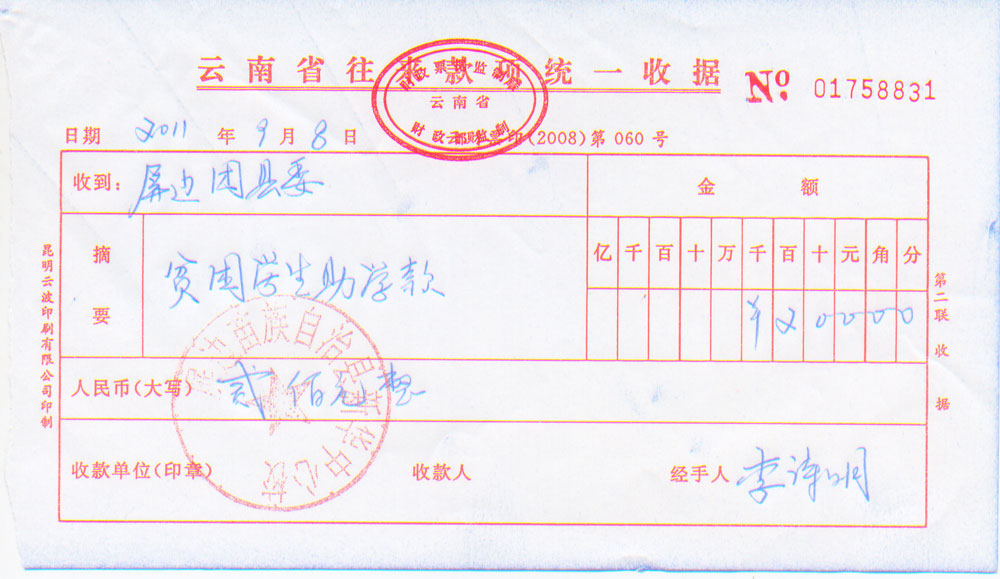 云南省往来款项统一收据
No. 01758831
财政票据监制章
云南省
财政部监制
日期 2011 年 9 月 8 日
印(2008)第 060 号
收到：屏边团县委
金 额
摘要
贫困学生助学款
亿 千 百 十 万 千 百 十 元 角 分
¥ 2 0 0 0 0
人民币(大写) 贰佰元整
屏边苗族自治县新华中心校
收款单位(印章) 收款人 经手人 李诗明
昆明云波印刷有限公司印制
第二联 收据